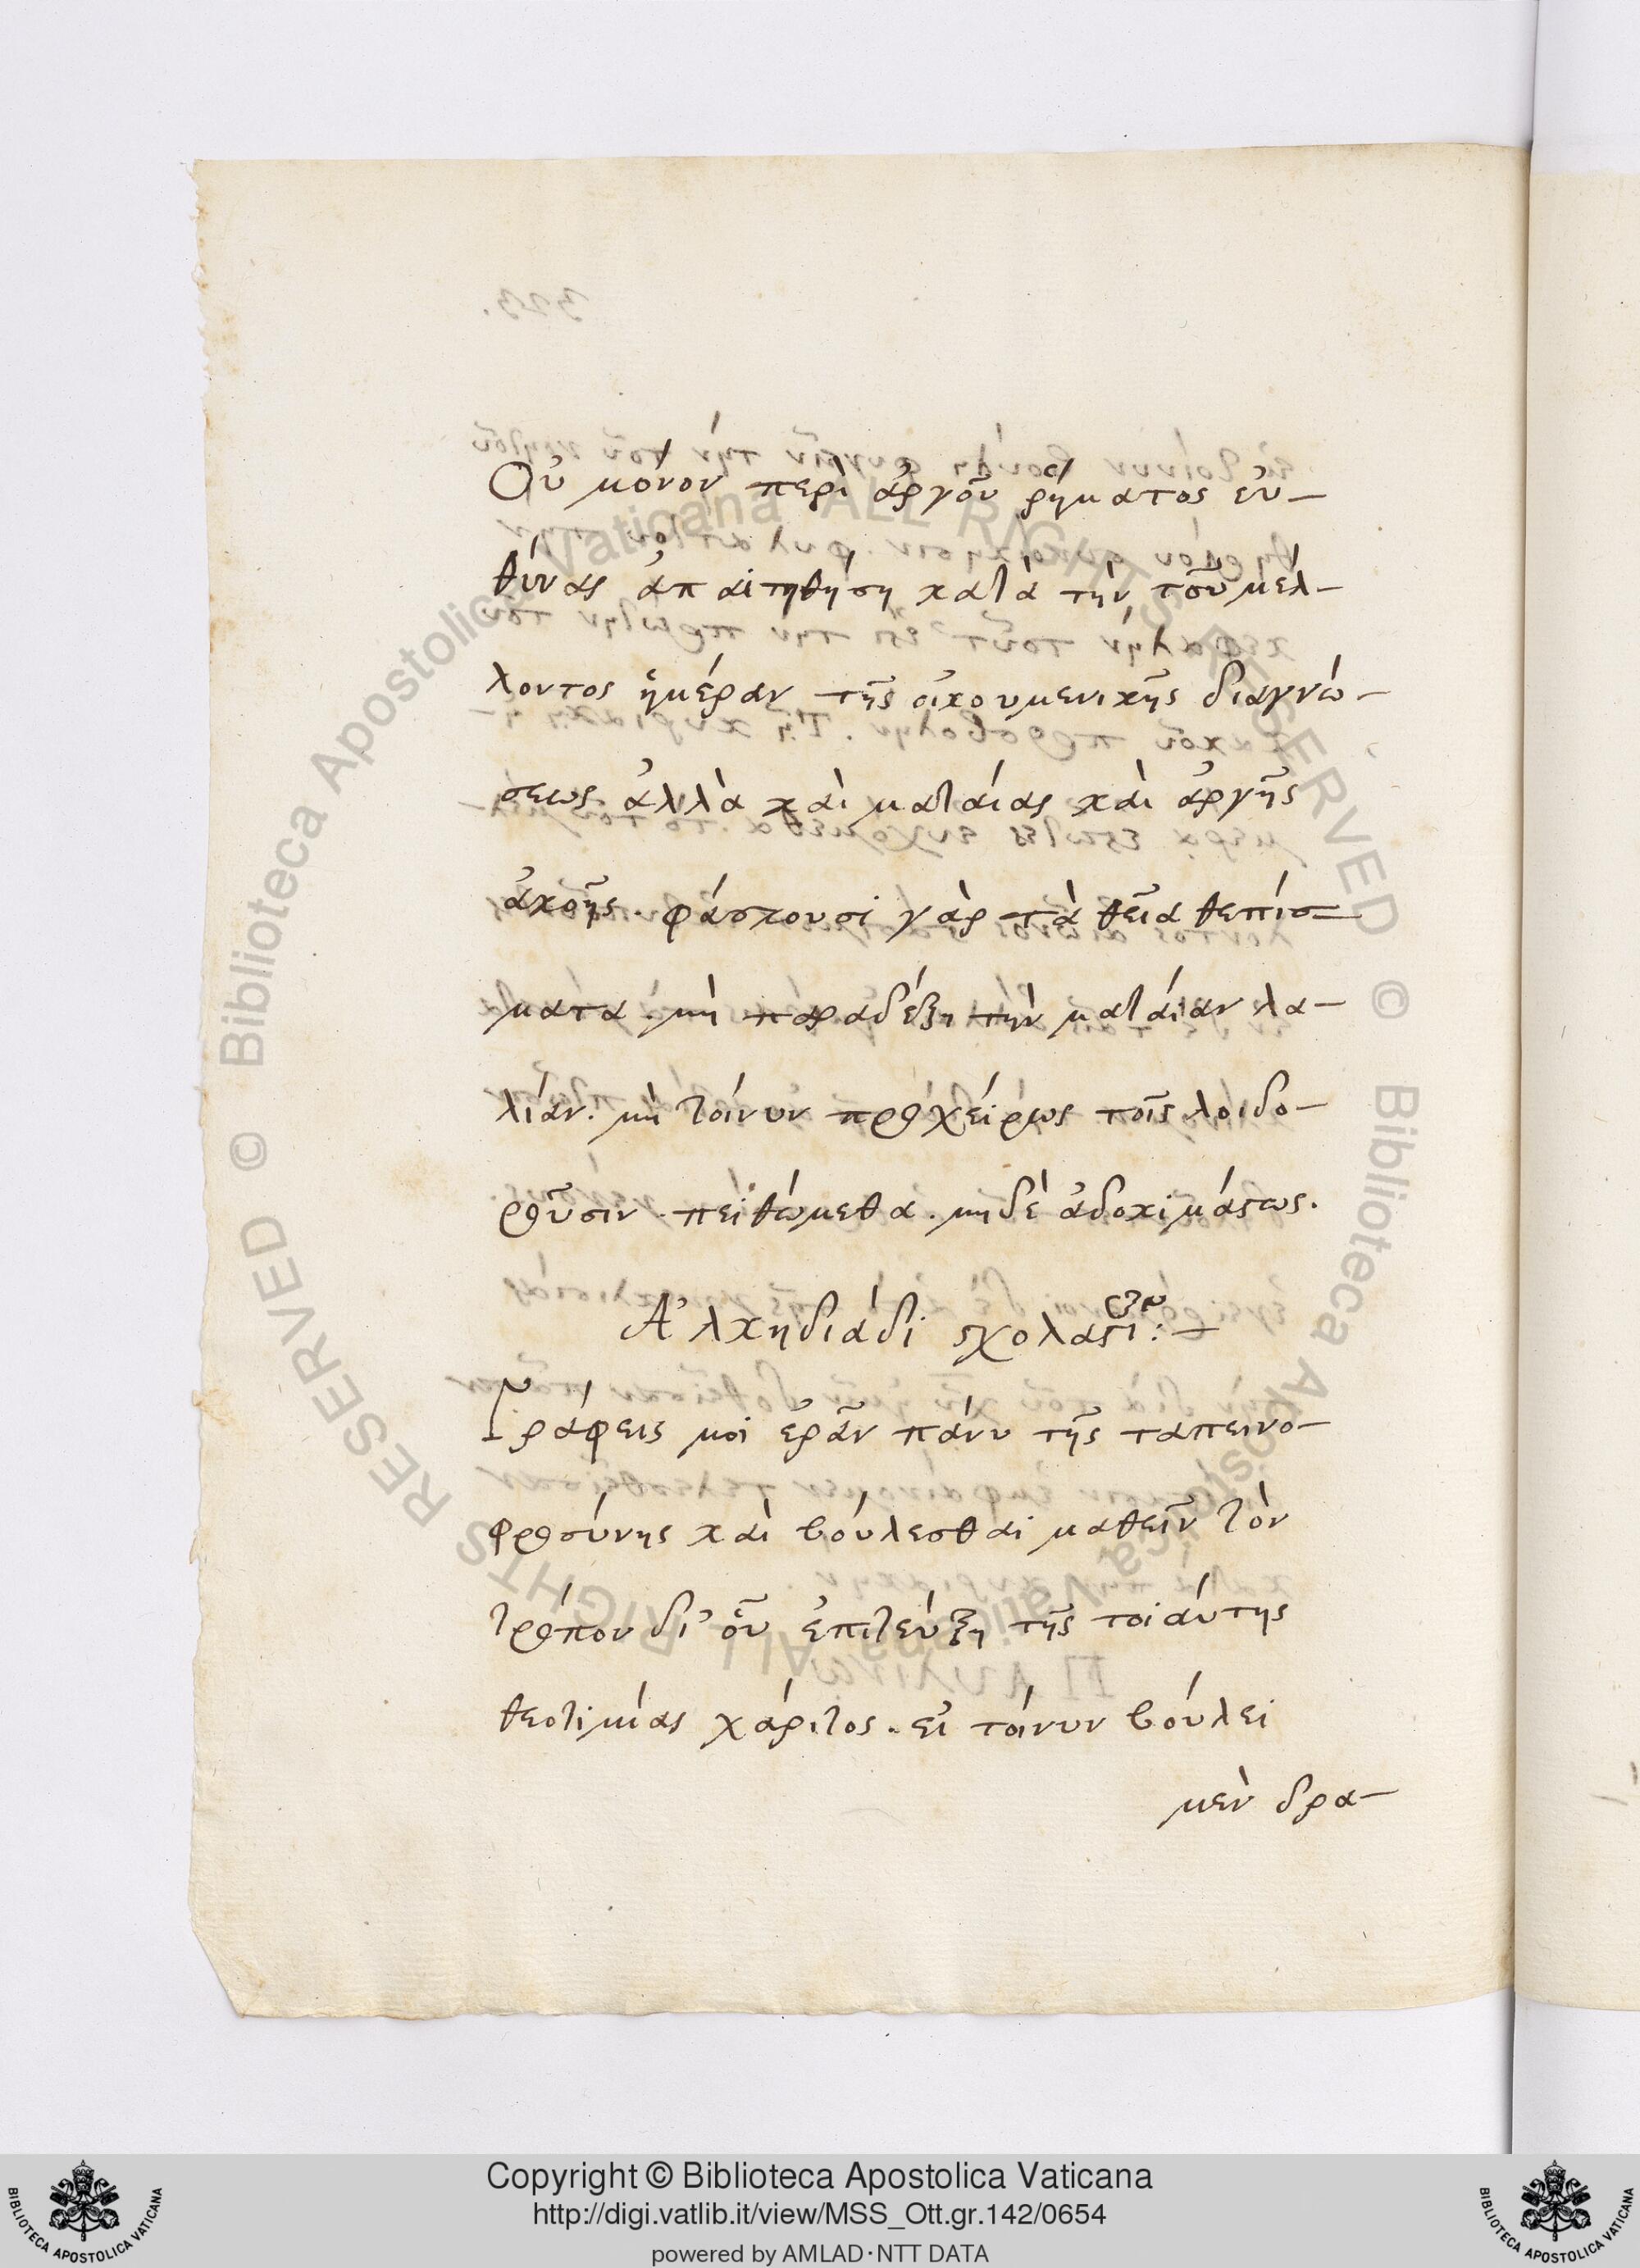 Οὐ μόνον περὶ ἀργοῦ ῥήματος εὐ-
θύνας ἀπαιτηθήση κατὰ τὴν τοῦ μέλ-
λοντος ἡμέραν τῆς οἰκουμενικῆς διαγνώ-
σεως ἀλλὰ καὶ ματαίας καὶ ἀργῆς
ἀκοῆς. φάσκουσι γὰρ τὰ θεῖα θεπίσ-
ματα. μὴ παραδέξη τὴν ματαίαν λα-
λίαν. μὴ τοίνυν προχείρως τοῖς λοιδο-
ροῦσιν. πειθώμεθα. μηδὲ ἀδοκιμάστως.
Ἀλκηδιάδι σχολαστι:-
Γράφεις μοι ἐρᾶν πάνυ τῆς ταπεινο-
φροσύνης καὶ βούλεσθαι μαθεῖν τὸν
τρόπον δι' οὗ ἐπιτεύξη τῆς τοιαύτης
θεοτιμίας χάριτος. εἰ τοίνυν βούλει
μὲν δρα-
Copyright © Biblioteca Apostolica Vaticana
http://digi.vatlib.it/view/MSS_Ott.gr.142/0654
powered by AMLAD·NTT DATA
BIBLIOTECA APOSTOLICA VATICANA
BIBLIOTECA APOSTOLICA VATICANA
© Biblioteca Apostolica Vaticana ALL RIGHTS RESERVED © Biblioteca Apostolica Vaticana ALL RIGHTS RESERVED